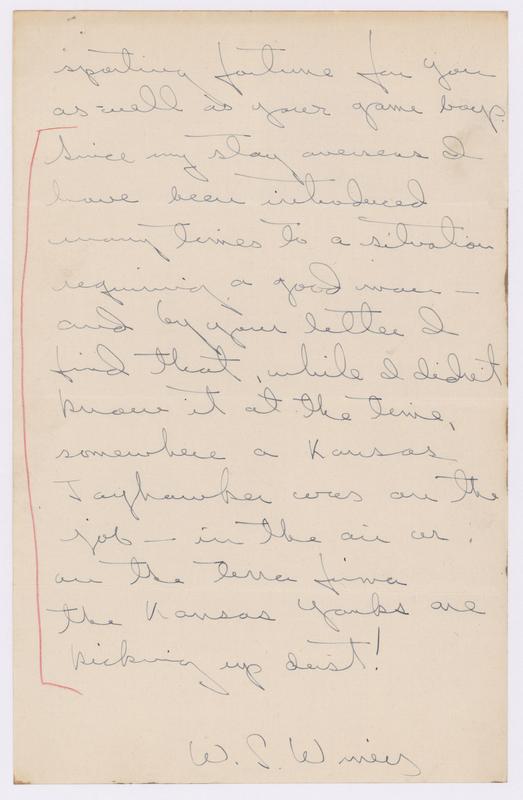 sporting fortune for you
as well as your game boys.
Since my stay overseas I
have been introduced
many times to a situation
requiring a good man —
and by your letter I
find that, while I didn't
know it at the time,
somewhere a Kansas
Jayhawker was on the
job — in the air or
on the terra firma
the Kansas Yanks are
kicking up dust!
W. S.